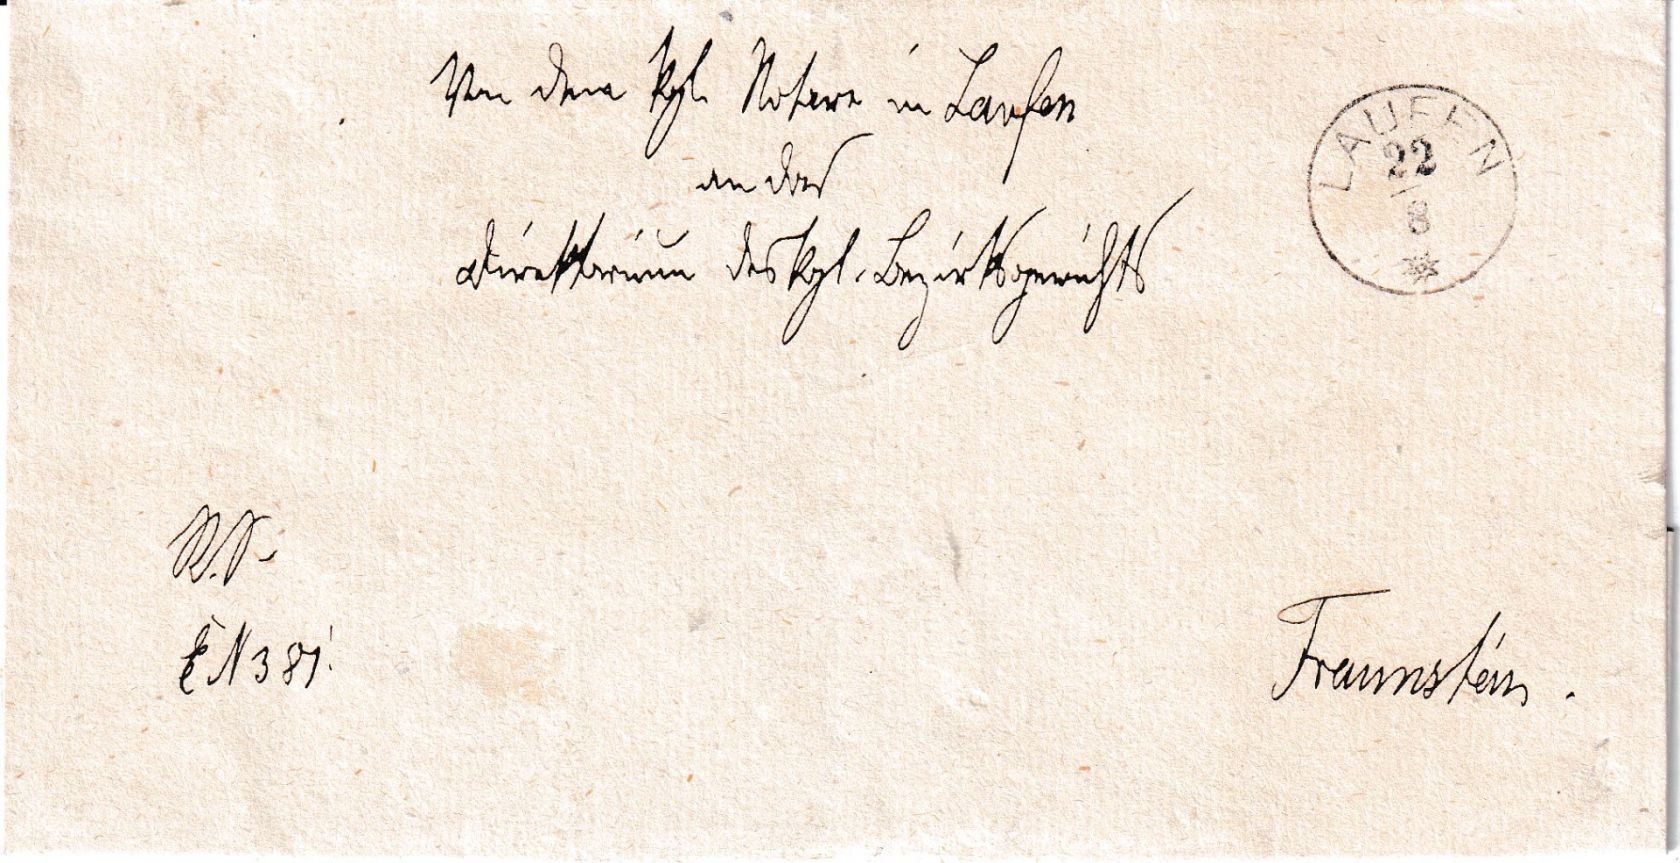 Von dem kgl. Notare in Laufen
an das
Direktorium des kgl. Bezirksgerichts
LAUFEN
22
8
R.S.
E N 381.
Traunstein.